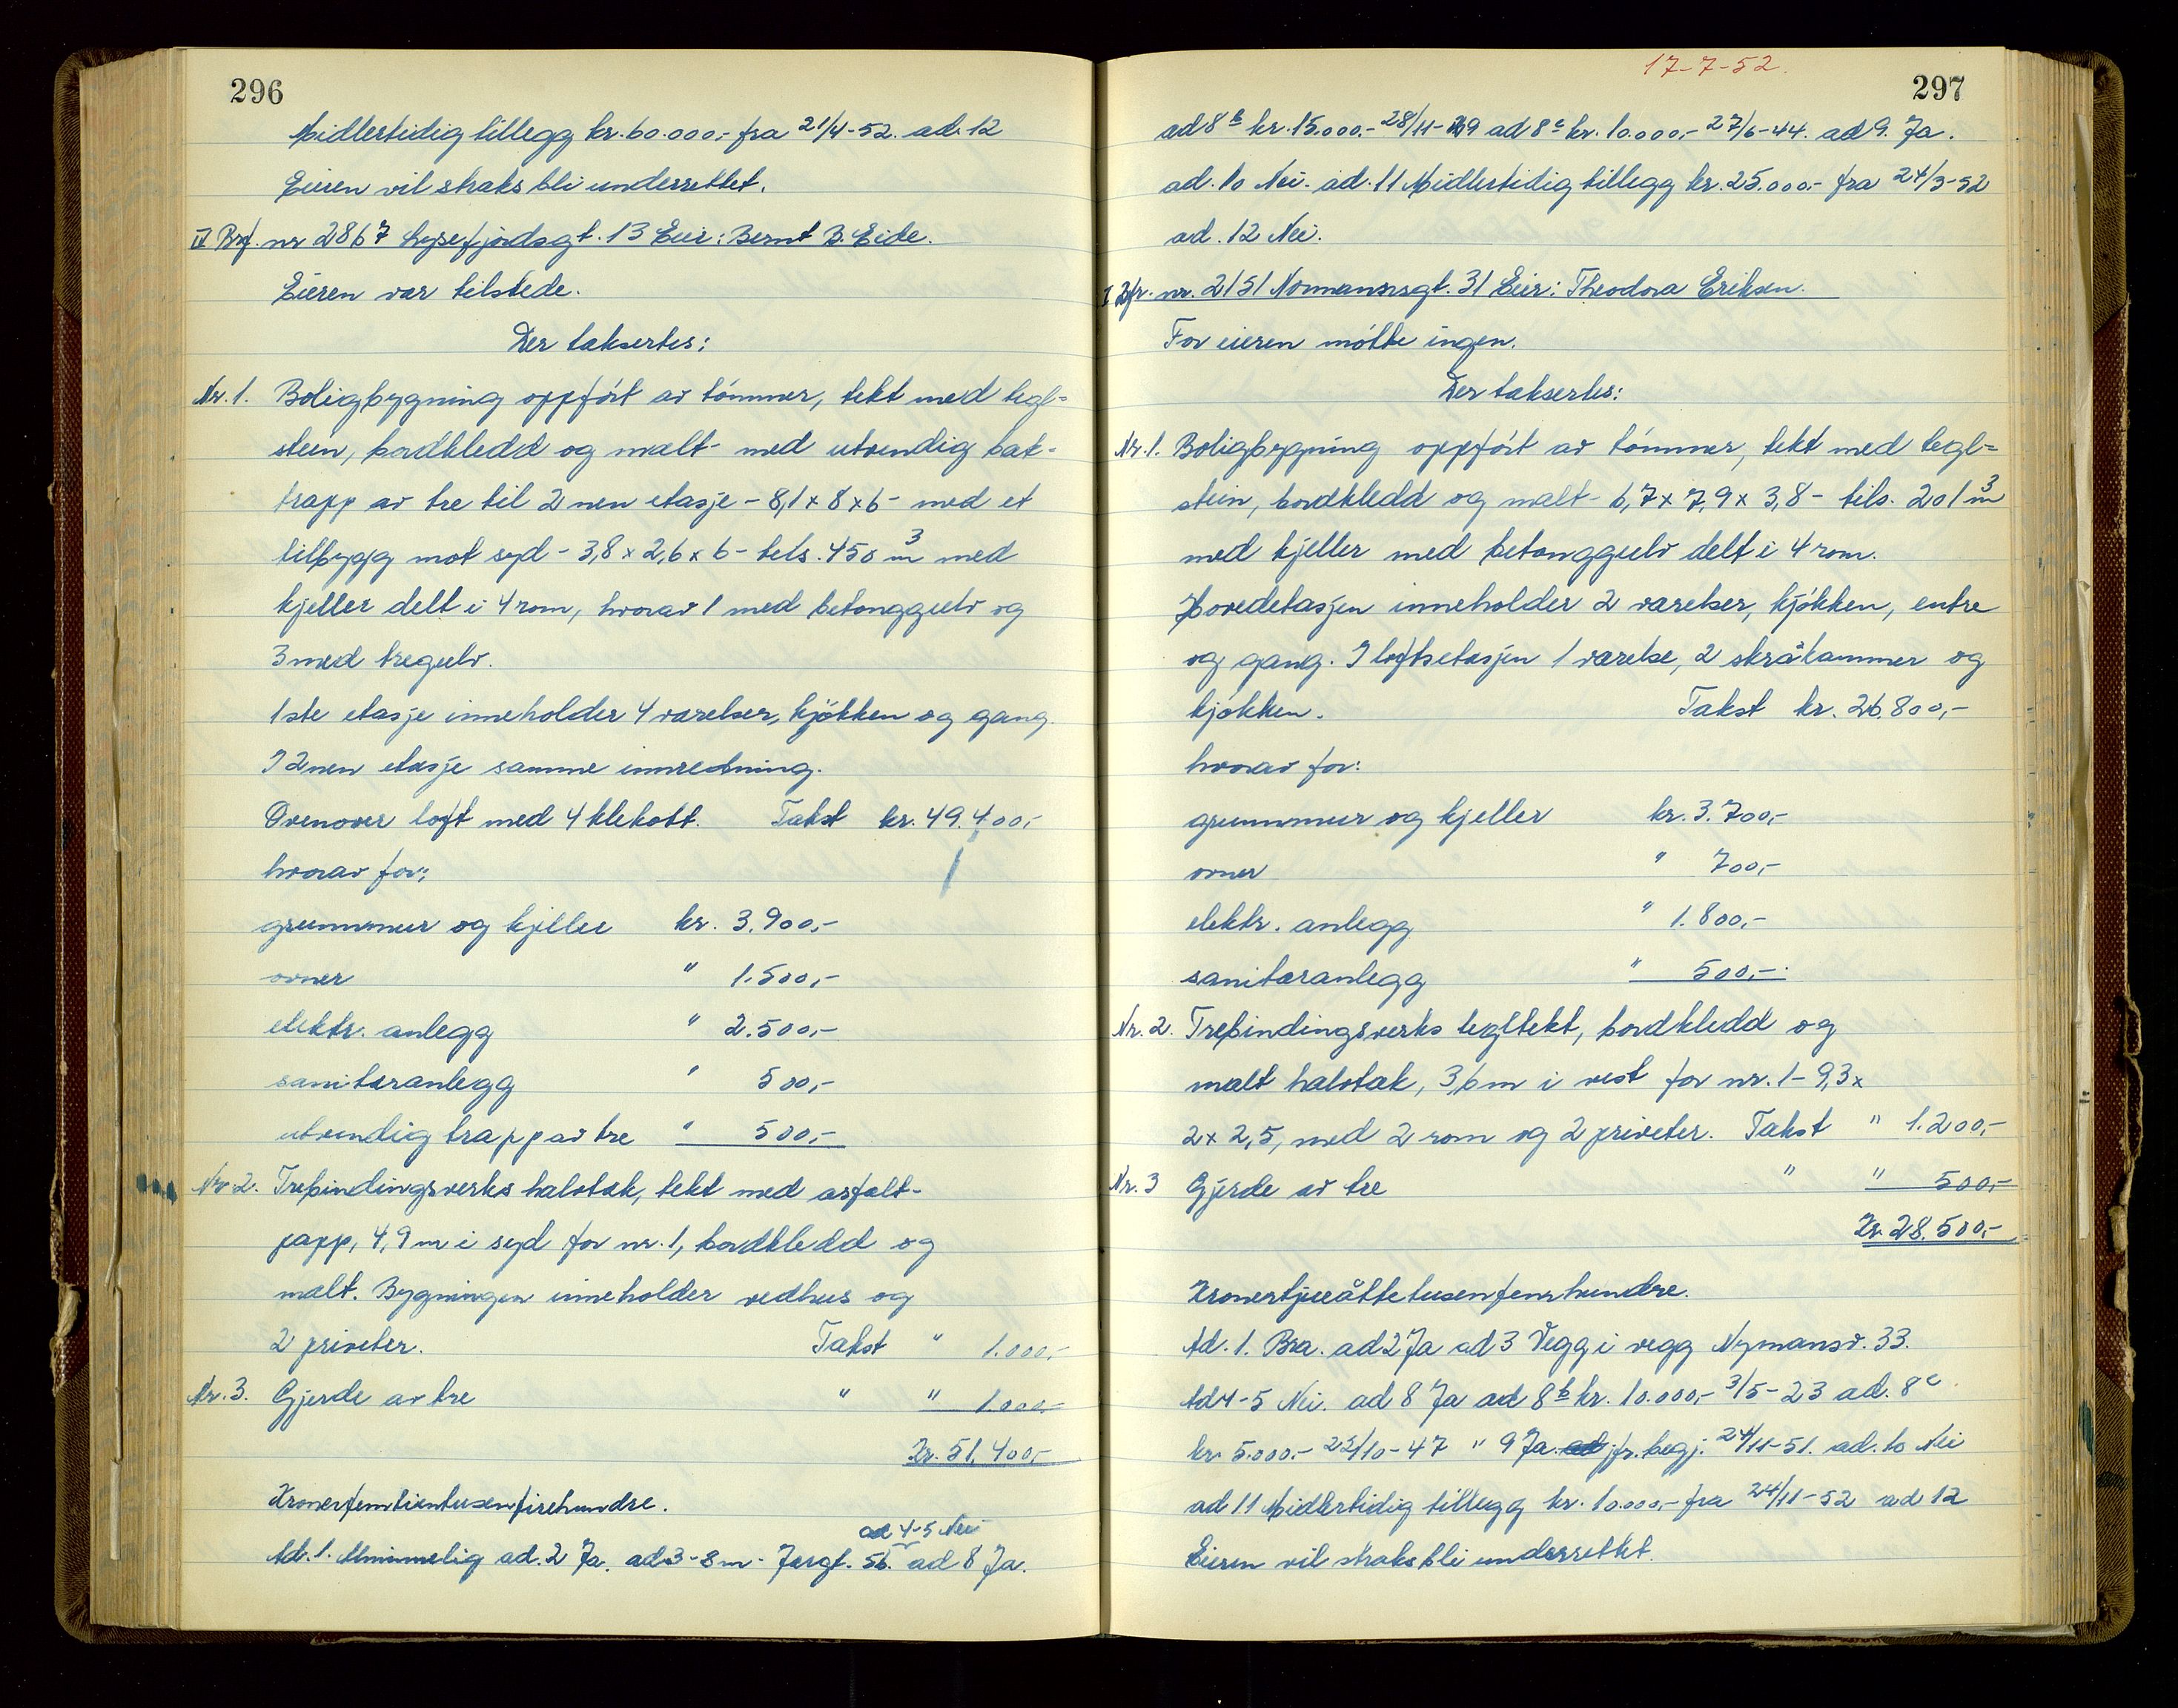 296
Midlertidig tillegg kr. 60.000,- fra 21/4-52. ad. 12
Eieren vil straks bli underrettet.
Brf. nr 2867 Lysefjordsgt. 13 Eier: Bernt B. Eide.
Eieren var tilstede.
Der taksertes:
Nr. 1. Boligbygning oppført av tømmer, tekt med tegl-
stein, bordkledd og malt - med utvendig bak-
trapp av tre til 2nen etasje - 8,1 x 8 x 6 - med et
tilbygg mot syd - 3,8 x 2,6 x 6 - tils. 450 m3 med
kjeller delt i 4 rom, hvorav 1 med betonggulv og
3 med tregulv.
1ste etasje inneholder 4 værelser, kjøkken og gang.
I 2nen etasje samme innredning.
Ovenover loft med 4 klekott. Takst kr. 49.400,-
hvorav for:
grunnmur og kjeller kr. 3.900,-
ovner " 1.500,-
elektr. anlegg " 2.500,-
sanitæranlegg " 500,-
utvendig trapp av tre " 500,-
Nr 2. Trebindingsverks halvtak, tekt med asfalt-
papp, 4,9 m i syd for nr. 1, bordkledd og
malt. Bygningen inneholder vedhus og
2 priveter. Takst " 1.000,-
Nr. 3. Gjerde av tre " " 1.000,-
Kr. 51.400,-
Kronerfemtientusenfirehundre.
ad 4-5 Nei
Ad. 1. Alminnelig ad. 2 Ja. ad 3 - 8 m - 56. ad 8 Ja.
17-7-52.
297
ad 8b kr. 15.000.- 28/11-19 ad 8c kr. 10.000,- 27/6-44. ad 9. Ja.
ad. 10 Nei. ad. 11 Midlertidig tillegg kr. 25.000,- fra 24/3-52
ad. 12 Nei.
Bfr. nr. 2151 Normannsgt. 31 Eier: Theodora Eriksen.
For eieren møtte ingen.
Der taksertes:
Nr. 1. Boligbygning oppført av tømmer, tekt med tegl=
stein, bordkledd og malt - 6,7 x 7,9 x 3,8 - tils. 201 m3
med kjeller med betonggulv delt i 4 rom.
Hovedetasjen inneholder 2 værelser, kjøkken, entre
og gang. I loftsetasjen 1 værelse, 2 skråkammer og
kjøkken. Takst kr. 26.800,-
hvorav for:
grunnmur og kjeller kr. 3.700,-
ovner " 700,-
elektr. anlegg " 1.800,-
sanitæranlegg " 500,-
Nr. 2. Trebindingsverks tegltekt, bordkledd og
malt halvtak, 3,6 m i vest for nr. 1 - 9,3 x
2 x 2,5, med 2 rom og 2 priveter. Takst " 1.200,-
Nr. 3 Gjerde av tre " " 500,-
Kr. 28.500,-
Kronertjueåttetusenfemhundre.
Ad. 1. Bra. ad 2 Ja ad 3 Vegg i vegg Nymansv. 33.
Ad 4-5 Nei. ad 8 Ja ad 8b kr. 10.000,- 3/5-23 ad. 8c
kr. 5.000.- 22/10-47 " 9 Ja. jfr. begj. 24/11-51. ad. 10 Nei
ad 11 Midlertidig tillegg kr. 10.000,- fra 24/11-52 ad 12
Eieren vil straks bli underrettet.